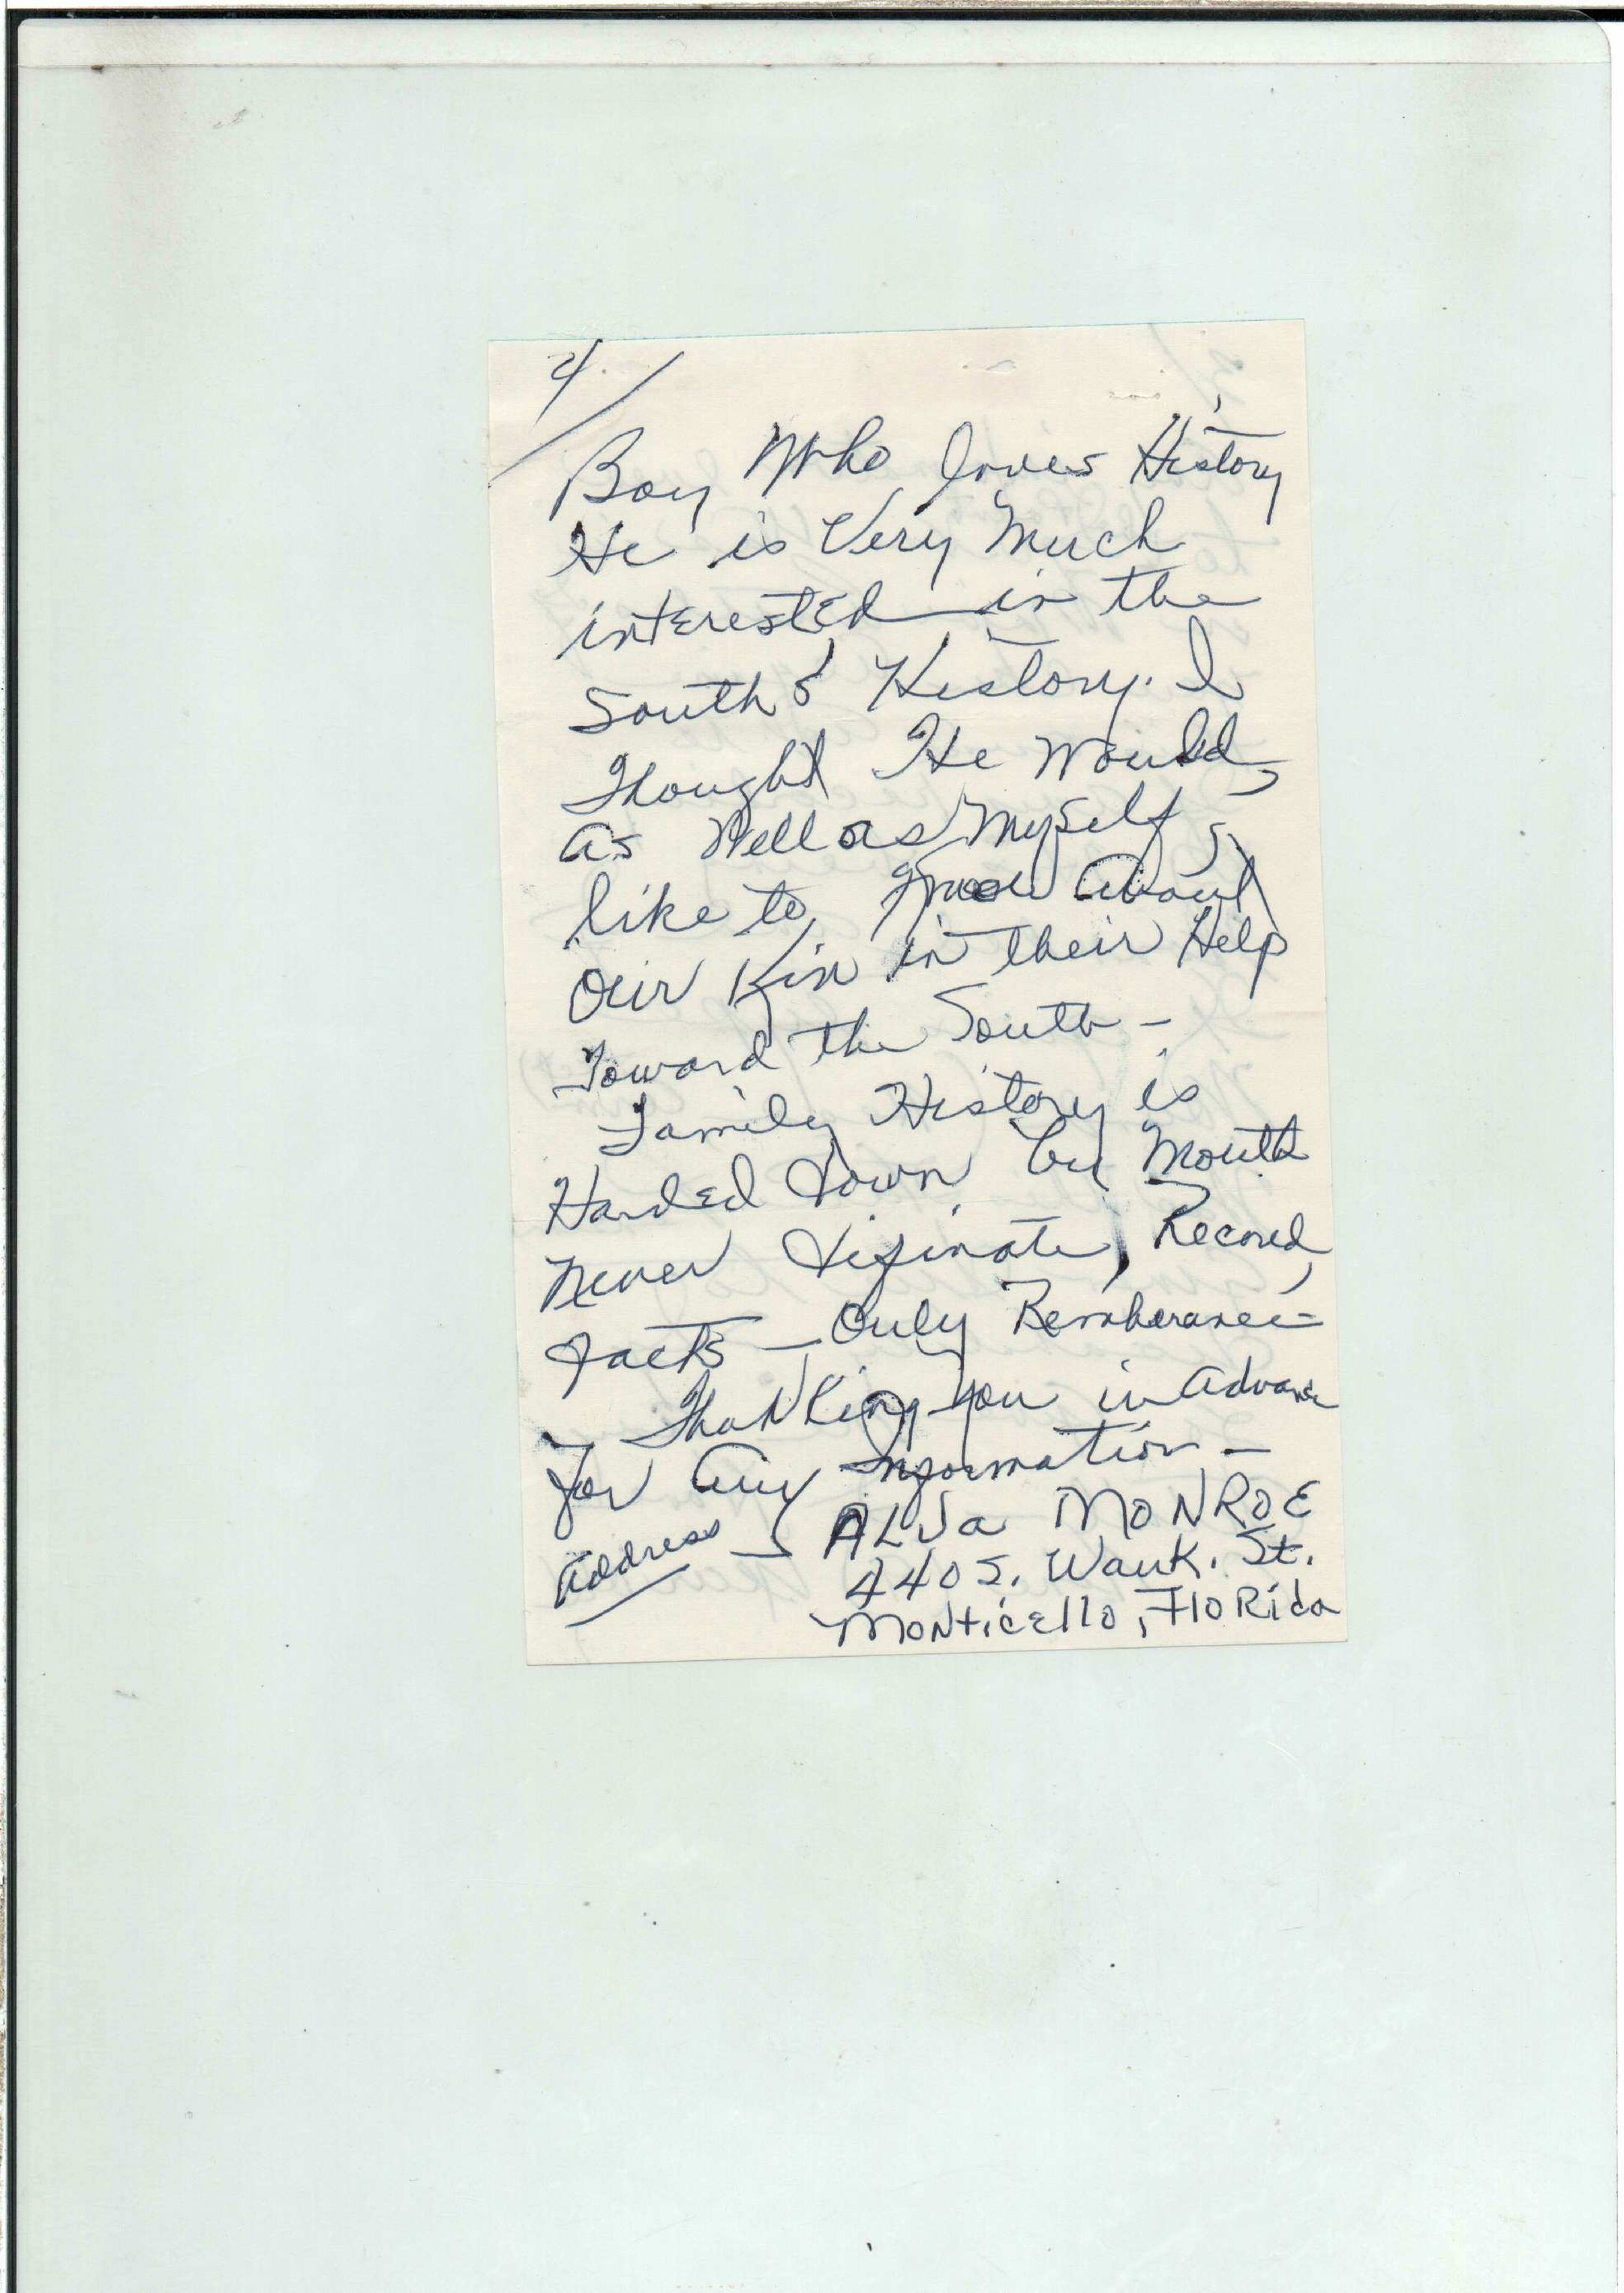 4/
Boy Who loves History
He is Very Much
interested in the
South's History. I
Thought He Would,
as Well as Myself,
like to Know About
Our Kin in their Help
Toward the South -
Family History is
Handed down by Mouth
Never Difinate, Record,
Facts - Only Remberance -
Thanking you in advance
for Any Information -
Address ALVa MONROE
440 S. Wauk. St.
MONticEllo, FloRida